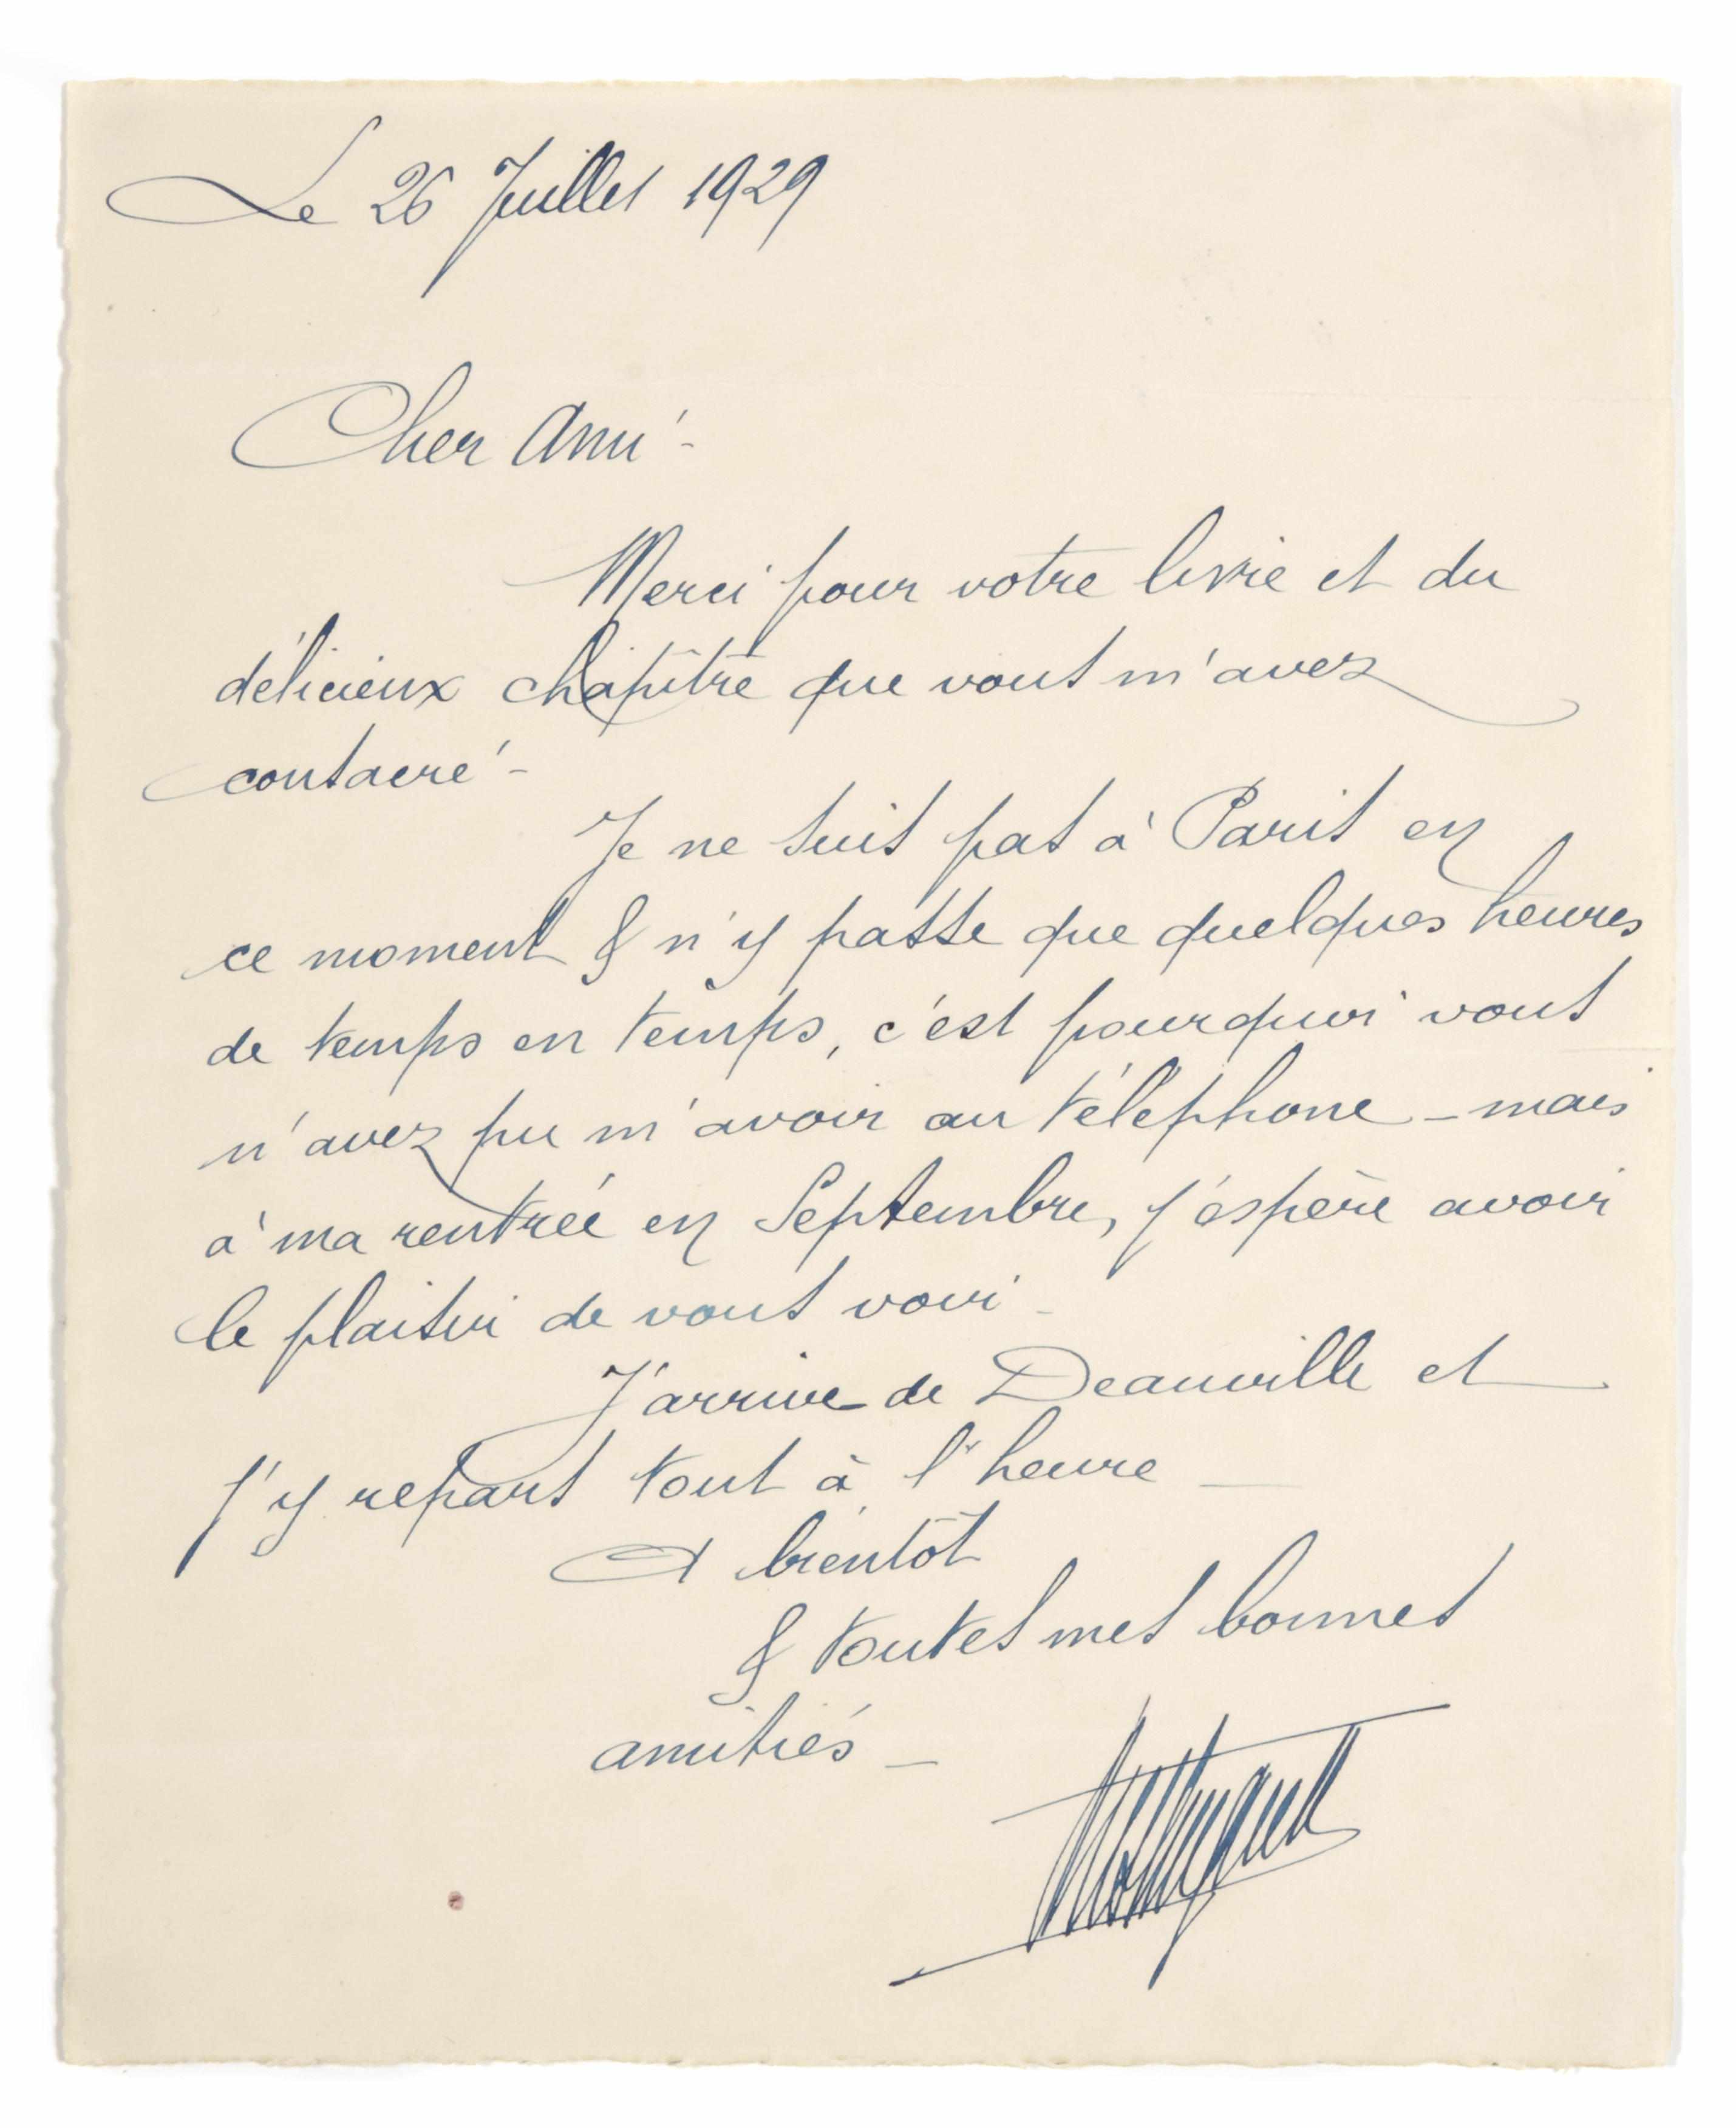 Le 26 Juillet 1929
Cher Ami -
Merci pour votre livre et du
délicieux chapître que vous m'avez
consacré -
Je ne suis pas à Paris en
ce moment & n'y passe que quelques heures
de temps en temps, c'est pourquoi vous
n'avez pu m'avoir au téléphone - mais
à ma rentrée en Septembre, j'espère avoir
le plaisir de vous voir -
J'arrive de Deauville et
j'y repars tout à l'heure -
A bientôt
& toutes mes bonnes
amitiés -
Mistinguett